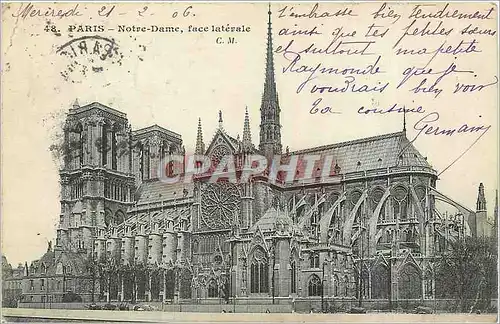 Mercredi 21-2 06.
48. PARIS - Notre-Dame, face latérale
C. M.
PARIS
J'embrasse bien tendrement
ainsi que tes petites sœurs
et surtout ma petite
Raymonde que je
voudrais bien voir
Ta cousine
Germaine
PHILAPHIL